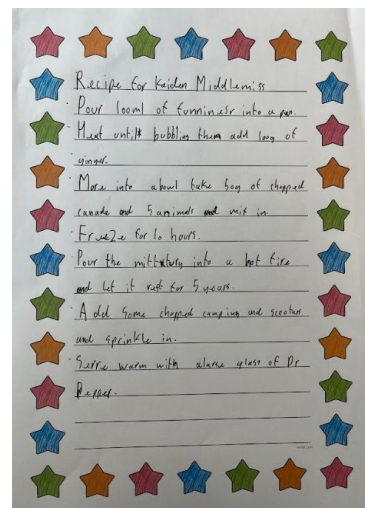 Recipe for Kaiden Middlemiss
Pour 100ml of funniness into a pan.
Heat until bubbling then add 100g of
ginger.
Move into a bowl take 50g of chopped
canada and 5 animals and mix in.
Freeze for 10 hours.
Pour the mixture into a hot fire
and let it rest for 5 years.
Add some chopped camping and scooter
and sprinkle in.
Serve warm with a large glass of Dr
Pepper.